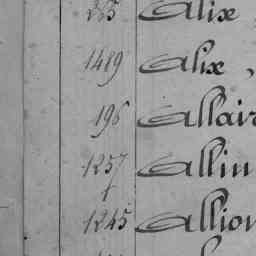 285 Alix,
1419 Alix,
196 Allair
1257 Allin
1245 Allion